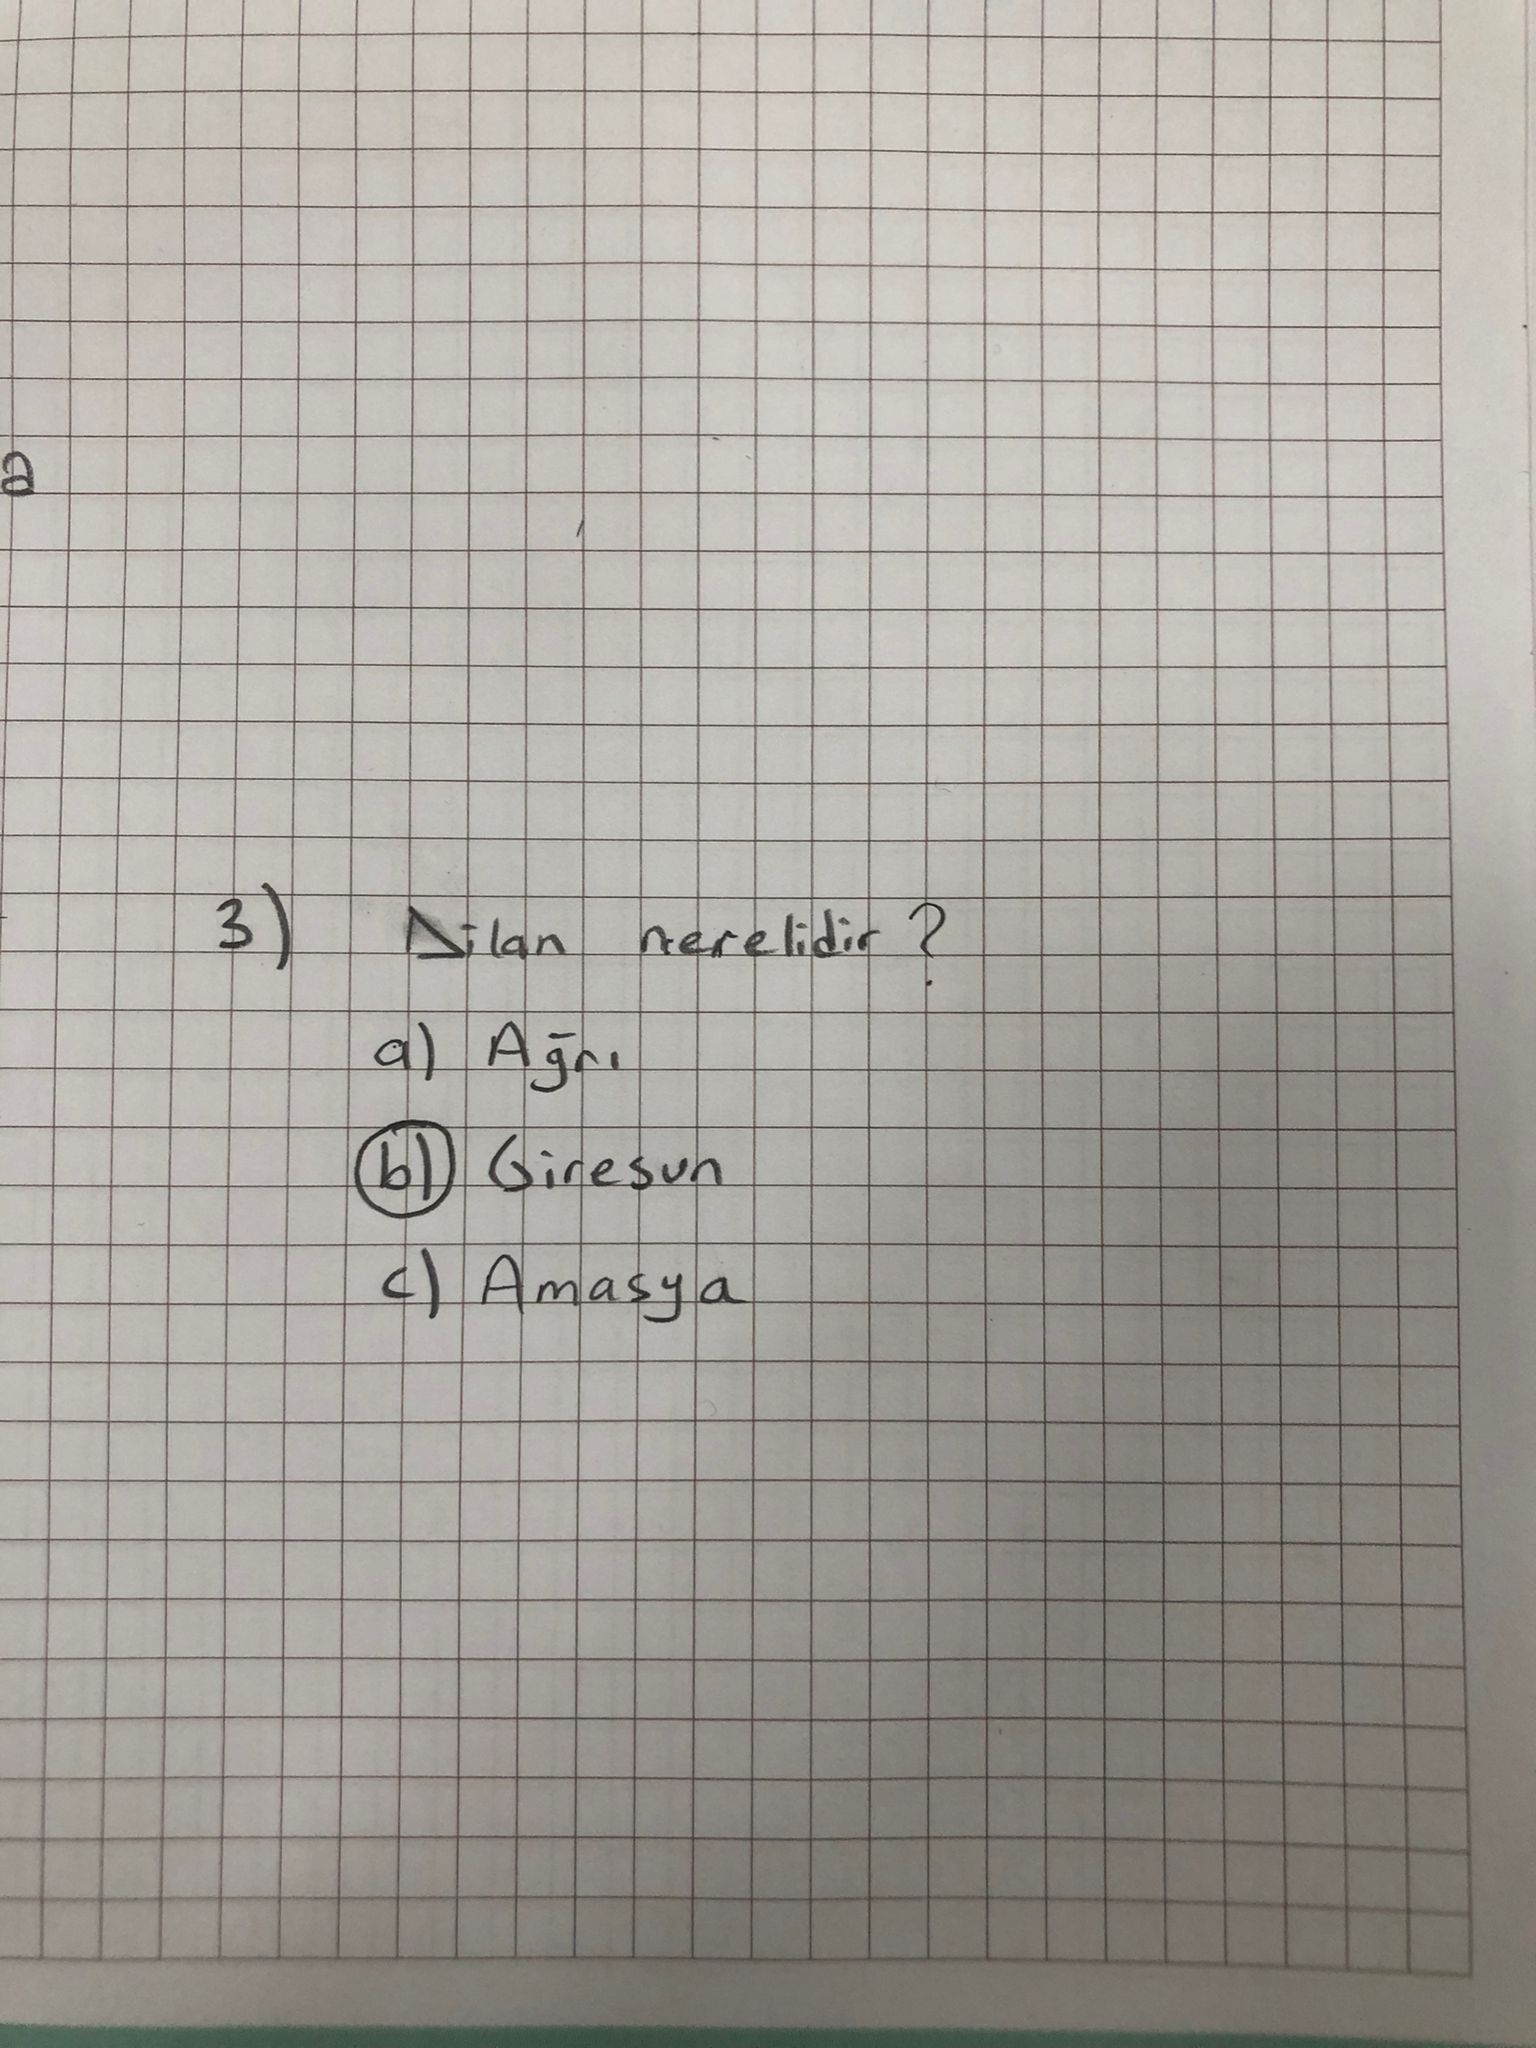 a
3) Dilan nerelidir?
a) Ağrı
b) Giresun
c) Amasya